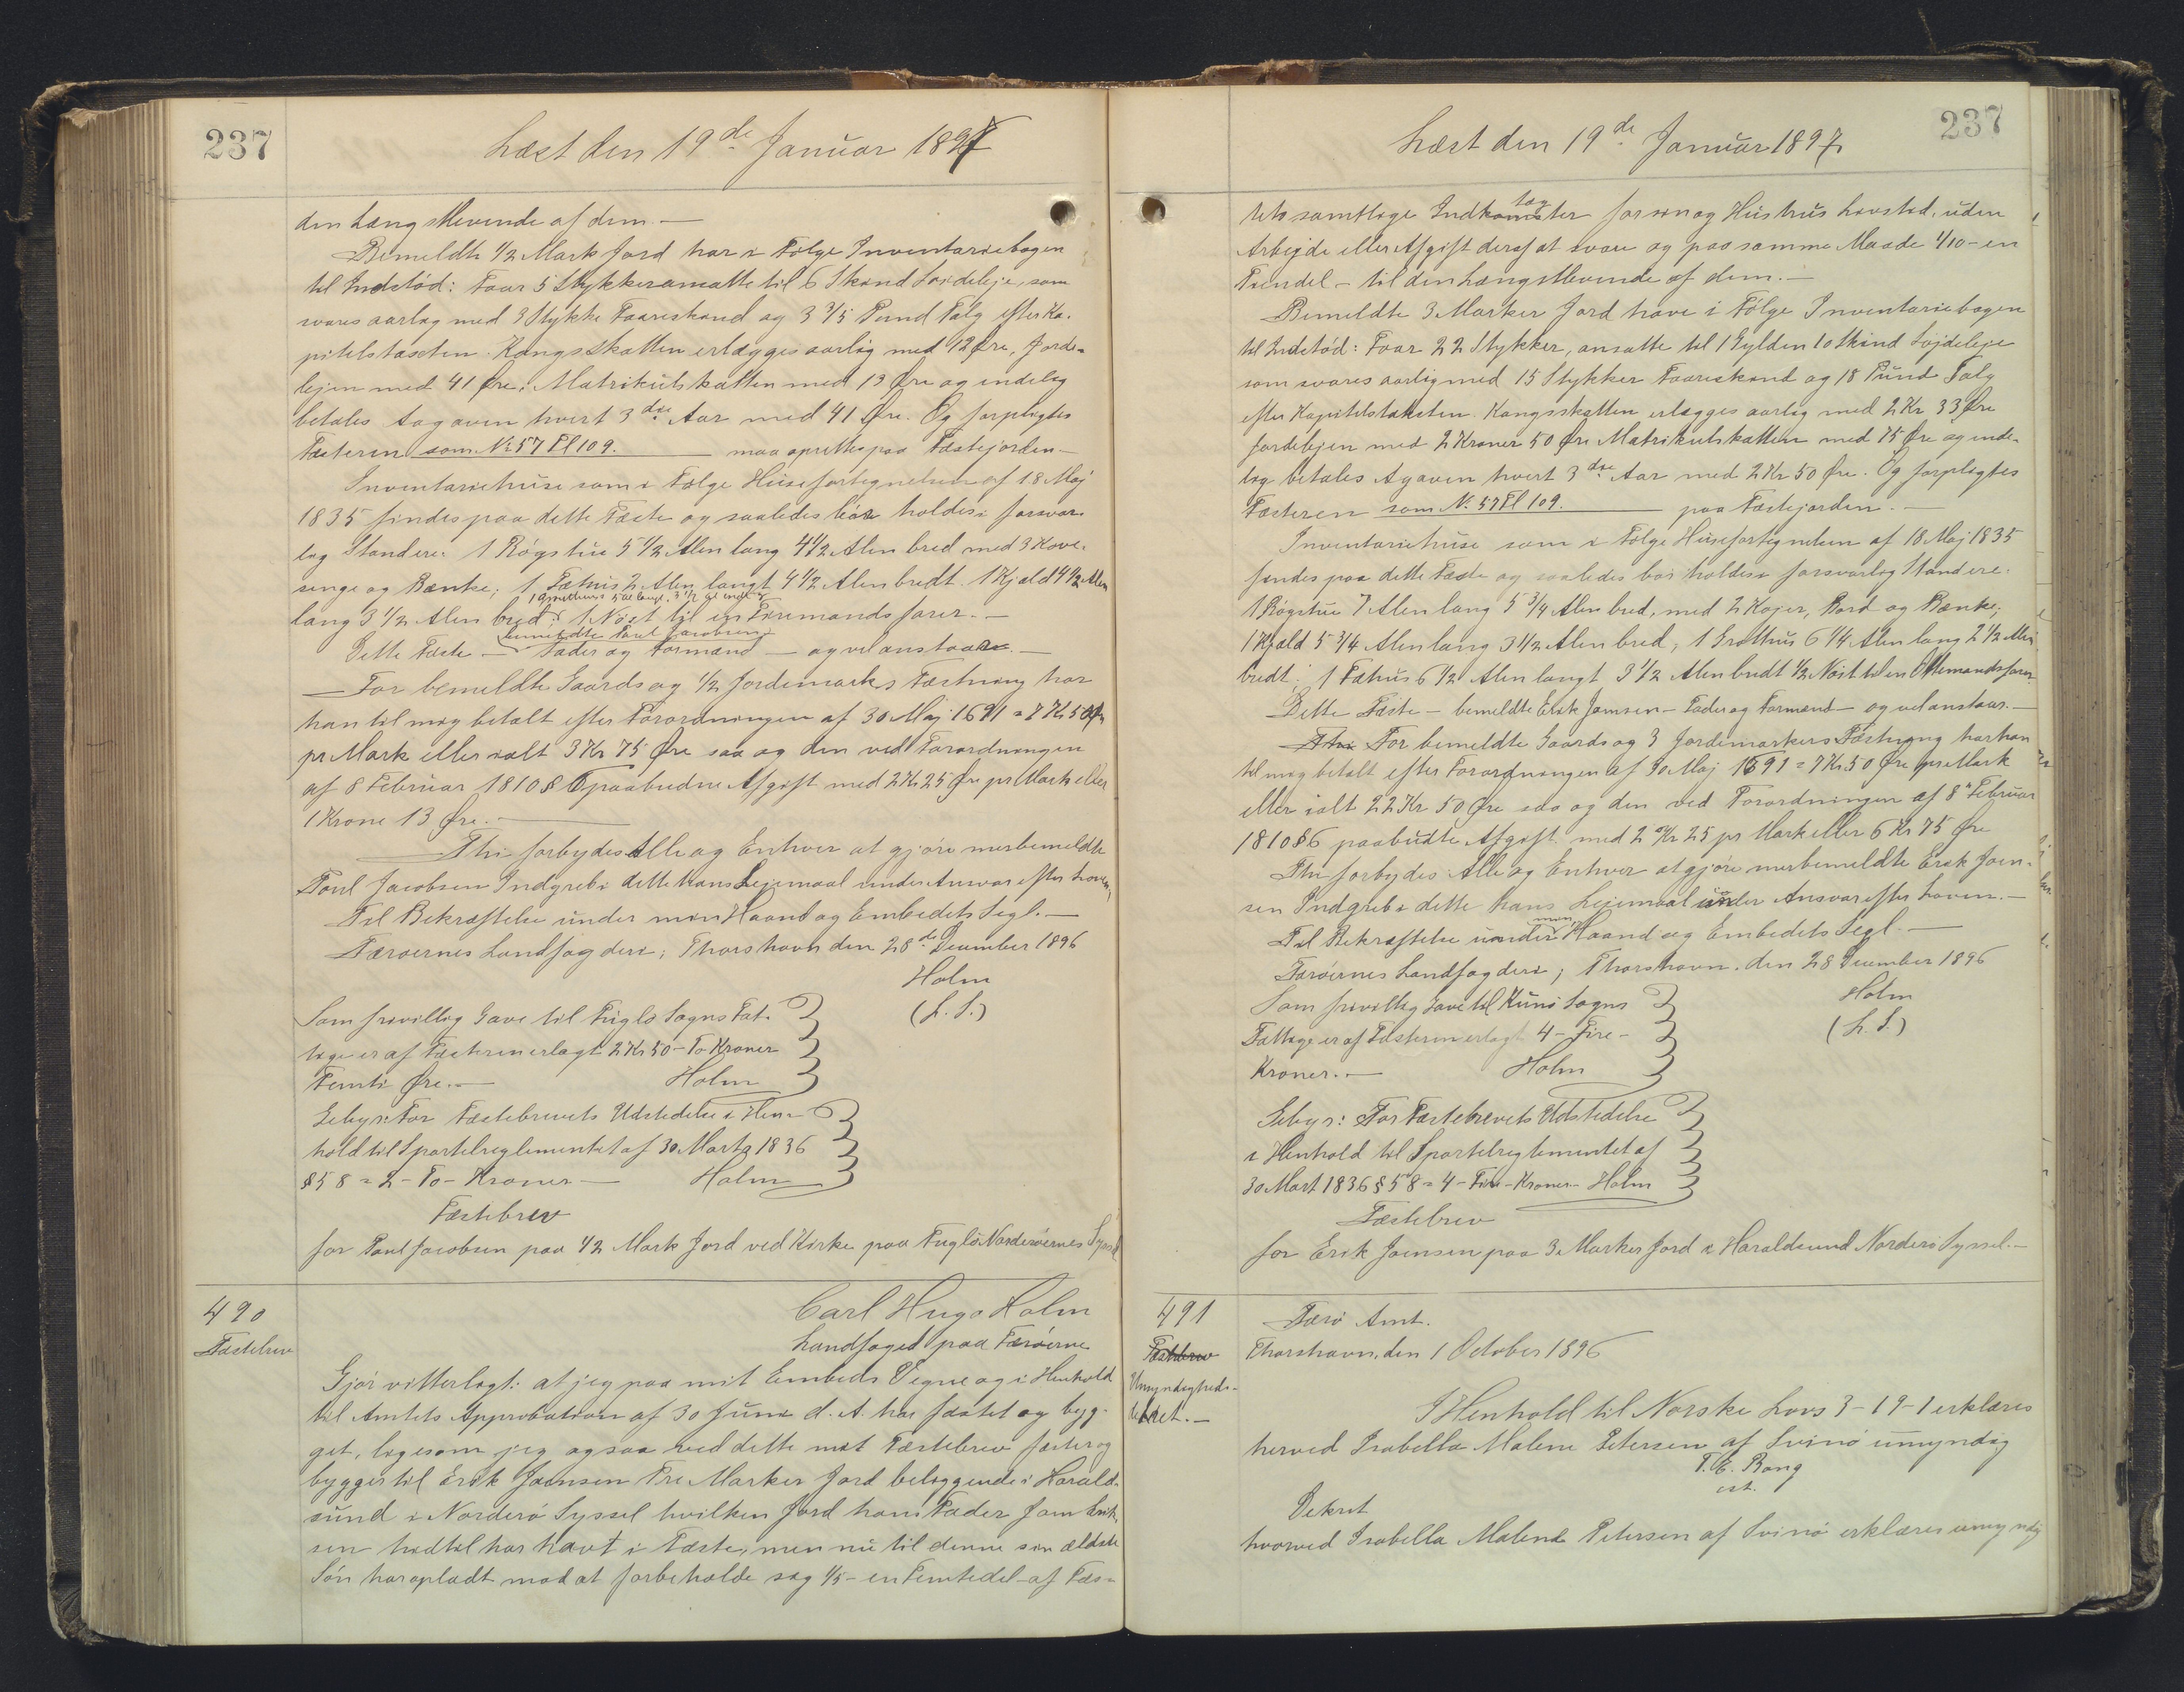 237
Læst den 19de Januar 1897
den Længstlevende af dem.—
Bemeldte 1/2 Mark Jord har i Følge Inventariebogen
til Indstød: Faar 5 Stykker ansatte til 6 Skind Søideleje, som
svares aarlig med 3 Stykke Faareskind og 3 3/5 Pund Talg efter Ka-
pitelstaxten. Kongsskatten erlægges aarlig med 12 Øre, Jorde-
lejen med 41 Øre, Matrikulskatten med 13 Øre og endelig
betales Aagaven hvert 3die Aar med 41 Øre. Og forpligtes
Fæsteren som No 57 Fl 109. maa oprettes paa Fæstejorden.—
Inventariehuse som i Følge Huusefortegnelsen af 18 Maj
1835 findes paa dette Fæste og saaledes bør holdes i forsvar-
lig Stand ere: 1 Røgstue 5 1/2 Alen lang 4 1/2 Alen bred med 3 Kove-
senge og Bænke; 1 Fæhuus 2 Alen langt 4 1/2 Alen bredt. 1 Kjæld 4 1/2 Alen
lang 3 1/2 Alen bred; 1 Nøst til en Firemandsfarer.—
bemeldte Poul Jacobsens
Dette Fæste — Fader og Formænd — og vel anstaar.—
— For bemeldte Gaards og 1/2 Jordemarks Fæstning har
han til mig betalt efter Forordningen af 30 Maj 1691 = 7 Kr 50 Øre
pr Mark eller ialt 3 Kr 75 Øre saa og den ved Forordningen
af 8 Februar 1810 § 6 paabudne Afgift med 2 Kr 25 Øre pr Mark eller
1 Krone 13 Øre.—
Thi forbydes Alle og Enhver at gjøre merbemeldte
Poul Jacobsen Indgreb i dette hans Lejemaal under Ansvar efter Loven,
Til Bekræftelse under min Haand og Embedets Segl.—
Færøernes Landfogderi; Thorshavn den 28de December 1896
Holm
(L. S.)
Som frivillig Gave til Fuglø Sogns Fat-
tige er af Fæsteren erlagt 2 Kr 50 - To Kroner
Femti Øre.— Holm
Gebyr: For Fæstebrevets Udstedelse i Hen-
hold til Sportelreglementet af 30 Marts 1836
§ 58 = 2 - To - Kroner — Holm
Fæstebrev
for Poul Jacobsen paa 1/2 Mark Jord ved Kirke paa Fuglø Norderøernes Syssel
490
Fæstebrev
Carl Hugo Holm
Landfoged paa Færøerne
Gjør vitterligt: at jeg paa mit Embeds Vegne og i Henhold
til Amtets Approbation af 30 Juni d. A. har fæstet og byg-
get, ligesom jeg ogsaa ved dette mit Fæstebrev fæster og
bygger til Erik Joensen Tre Marker Jord beliggende i Harald-
sund i Norderø Syssel hvilken Jord hans Fader Joen Erik-
sen hidtil har havt i Fæste, men nu til denne sin ældste
Søn har opladt mod at forbeholde sig 1/5 - en Femtedel - af Fæs-
237
Læst den 19de Januar 1897
tets samtlige Indkomster for sin og Hustrus Levetid, uden
Arbejde eller Afgift deraf at svare og paa samme Maade 1/10 - en
Tiendel - til den Længstlevende af dem.—
Bemeldte 3 Marker Jord have i Følge Inventariebogen
til Indstød: Faar 22 Stykker, ansatte til 1 Gylden 10 Skind Søjdeleje
som svares aarlig med 15 Stykker Faareskind og 18 Pund Talg
efter Kapitelstaksten. Kongsskatten erlægges aarlig med 2 Kr 33 Øre
Jordelejen med 2 Kroner 50 Øre Matrikulskatten med 75 Øre og ende-
lig betales Agaven hvert 3die Aar med 2 Kr 50 Øre. Og forpligtes
Fæsteren som No. 57 Fl 109. paa Fæstejorden.—
Inventariehuse som i Følge Huusefortegnelsen af 18 Maj 1835
findes paa dette Fæste og saaledes bør holdes i forsvarlig Stand ere:
1 Røgstue 7 Alen lang 5 3/4 Alen bred, med 2 Kojer, Bord og Bænke;
1 Kjæld 5 3/4 Alen lang 3 1/2 Alen bred, 1 Grothus 6 1/4 Alen lang 2 1/2 Alen
bredt; 1 Fæhus 6 1/2 Alen langt 3 1/2 Alen bredt 1/2 Nøst til en Ottemandsfarer
Dette Fæste — bemeldte Erik Joensen — Fader og Formænd — og vel anstaar.—
For bemeldte Gaards og 3 Jordemarkers Fæstning har han
til mig betalt efter Forordningen af 30 Maj 1691 = 7 Kr. 50 Øre pr Mark
eller ialt 22 Kr 50 Øre saa og den ved Forordningen af 8 Februar
1810 § 6 paabudte Afgift med 2 Kr 25 pr Mark eller 6 Kr 75 Øre
Thi forbydes Alle og Enhver at gjøre merbemeldte Erik Joen-
sen Indgreb i dette hans Lejemaal under Ansvar efter Loven.—
Til Bekræftelse under min Haand og Embedets Segl.—
Færøernes Landfogderi; Thorshavn. den 28 December 1896
Holm
(L. S.)
Som frivillig Gave til Kunø Sogns
Fattige er af Fæsteren erlagt 4 - Fire -
Kroner.— Holm
Gebyr: For Fæstebrevets Udstedelse
i Henhold til Sportelreglementet af
30 Mart 1836 § 58 = 4 - Fire - Kroner - Holm
Fæstebrev
for Erik Joensen paa 3 Marker Jord i Haraldsund Norderø Syssel.—
491
Fæstebrev
Umyndigheds-
dekret.—
Færø Amt.
Thorshavn, den 1 October 1896
I Henhold til Norske Lovs 3-19-1 erklæres
herved Isabella Malene Petersen af Svinø umyndig
T. E. Bang
cst.
Dekret
hvorved Isabella Malene Petersen af Svinø erklæres umyndig